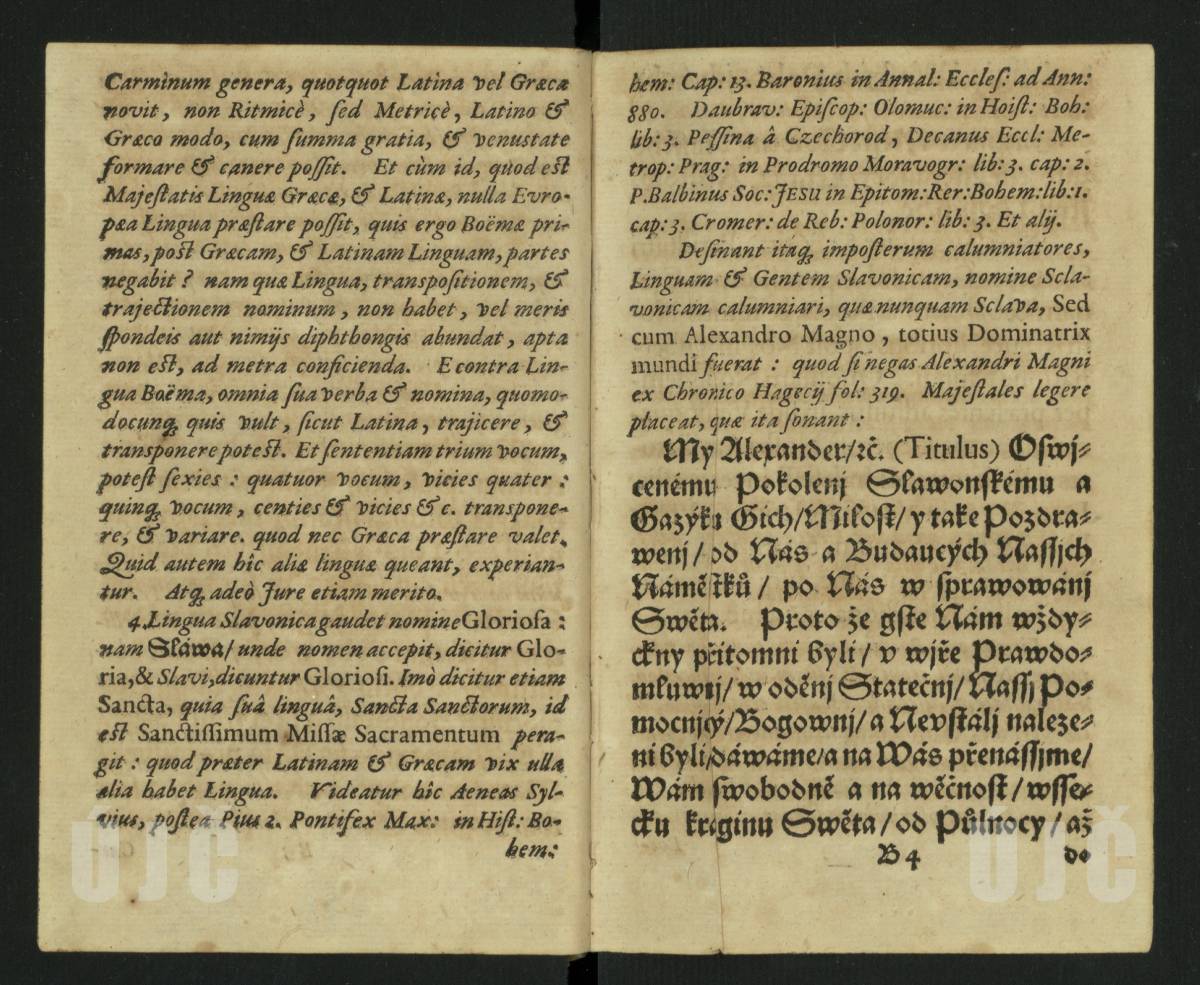 Carminum genera, quotquot Latina vel Græca
novit, non Ritmicè, ſed Metricè, Latino &
Græco modo, cum ſumma gratia, & venustate
formare & canere poſſit. Et cùm id, quod eſt
Majeſtatis Linguæ Græcæ, & Latinæ, nulla Evro-
pæa Lingua præſtare poſſit, quis ergo Boëmæ pri-
mas, poſt Græcam, & Latinam Linguam, partes
negabit ? nam quæ Lingua, transpoſitionem, &
trajectionem nominum, non habet, vel meris
ſpondeis aut nimijs diphthongis abundat, apta
non eſt, ad metra conficienda. E contra Lin-
gua Boëma, omnia ſua verba & nomina, quomo-
docunq; quis vult, ſicut Latina, trajicere, &
transponere poteſt. Et ſententiam trium vocum,
poteſt ſexies : quatuor vocum, vicies quater :
quinq; vocum, centies & vicies &c. transpone-
re, & variare. quod nec Græca præſtare valet.
Quid autem hîc aliæ linguæ queant, experian-
tur. Atq; adeò Jure etiam merito.
4. Lingua Slavonica gaudet nomine Glorioſa :
nam Sláwa/ unde nomen accepit, dicitur Glo-
ria, & Slavi, dicuntur Glorioſi. Imò dicitur etiam
Sancta, quia ſuâ linguâ, Sancta Sanctorum, id
eſt Sanctiſſimum Miſſæ Sacramentum pera-
git : quod præter Latinam & Græcam vix ulla
alia habet Lingua. Videatur hîc Aeneas Syl-
vius, poſtea Pius 2. Pontifex Max: in Hiſt: Bo-
hem:
hem: Cap: 13. Baronius in Annal: Eccleſ: ad Ann:
880. Daubrav: Epiſcop: Olomuc: in Hoiſt: Boh:
lib: 3. Peſſina â Czechorod, Decanus Eccl: Me-
trop: Prag: in Prodromo Moravogr: lib: 3. cap: 2.
P. Balbinus Soc: JESU in Epitom: Rer: Bohem: lib: 1.
cap: 3. Cromer: de Reb: Polonor: lib: 3. Et alij.
Deſinant itaq; impoſterum calumniatores,
Linguam & Gentem Slavonicam, nomine Scla-
vonicam calumniari, quæ nunquam Sclava, Sed
cum Alexandro Magno, totius Dominatrix
mundi fuerat : quod ſi negas Alexandri Magni
ex Chronico Hagecij fol: 319. Majeſtales legere
placeat, quæ ita ſonant :
My Alexander/ ꝛč. (Titulus) Oſwj-
cenému Pokolenj Slawonſkému a
Gazýku Gich/ Miloſt/ y také Pozdra-
wenj/ od Nás a Budaucých Naſſjch
Náměſtků/ po Nás w ſprawowánj
Swěta. Proto že gſte Nám wždy-
ckny přitomni byli/ v wjře Prawdo-
mluwnj/ w oděnj Statečnj/ Naſſj Po-
mocnjcý/ Bogownj/ a Nevſtálj naleze-
ni byli/ dáwáme/ a na Wás přenáſſjme/
Wám ſwobodně a na wěčnoſt/ wſſe-
cku kraginu Swěta/ od Půlnocy/ až
B 4
do
ÚJČ
ÚJČ